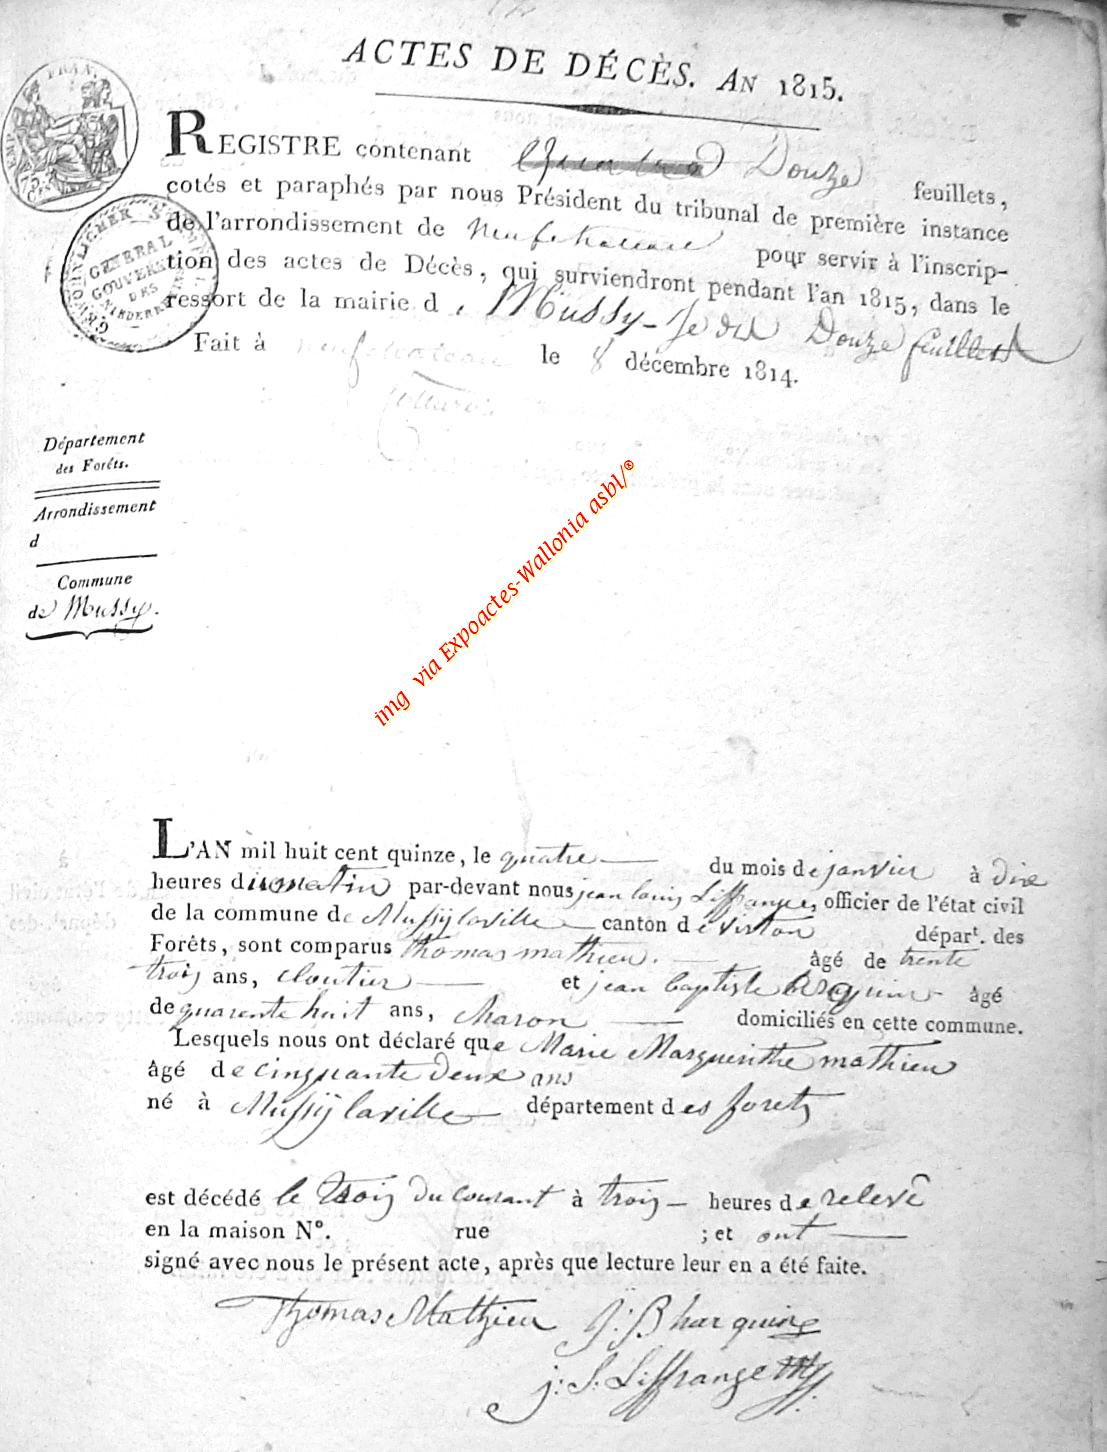 ACTES DE DÉCÈS. AN 1815.
REGISTRE contenant Douze feuillets,
cotés et paraphés par nous Président du tribunal de première instance
de l'arrondissement de Neufchateau pour servir à l'inscrip-
tion des actes de Décès, qui surviendront pendant l'an 1815, dans le
ressort de la mairie d e Müssy - Je dis Douze feuillets
Fait à neufchateau le 8 décembre 1814.
FRAN.
75
CEN
GENERAL
GOUVERN
DES
NIEDERRHEINS
Département
des Forêts.
Arrondissement
d
Commune
de Mussy.
img via Expoactes-Wallonia asbl/®
L'AN mil huit cent quinze, le quatre du mois de janvier à dix
heures du matin par-devant nous jean louis Liffrange, officier de l'état civil
de la commune de Mussy laville canton de virton départ. des
Forêts, sont comparus Thomas mathieu. âgé de trente
trois ans, cloutier et jean baptiste harquin âgé
de quarente huit ans, charon domiciliés en cette commune.
Lesquels nous ont déclaré que Marie Margueritte mathieu
âgé de cinquante deux ans
né à Mussy laville département des forets
est décédé le trois du courant à trois heures de relevé
en la maison N°. rue ; et ont
signé avec nous le présent acte, après que lecture leur en a été faite.
Thomas Mathieu J: B harquin
j: L: Liffrange